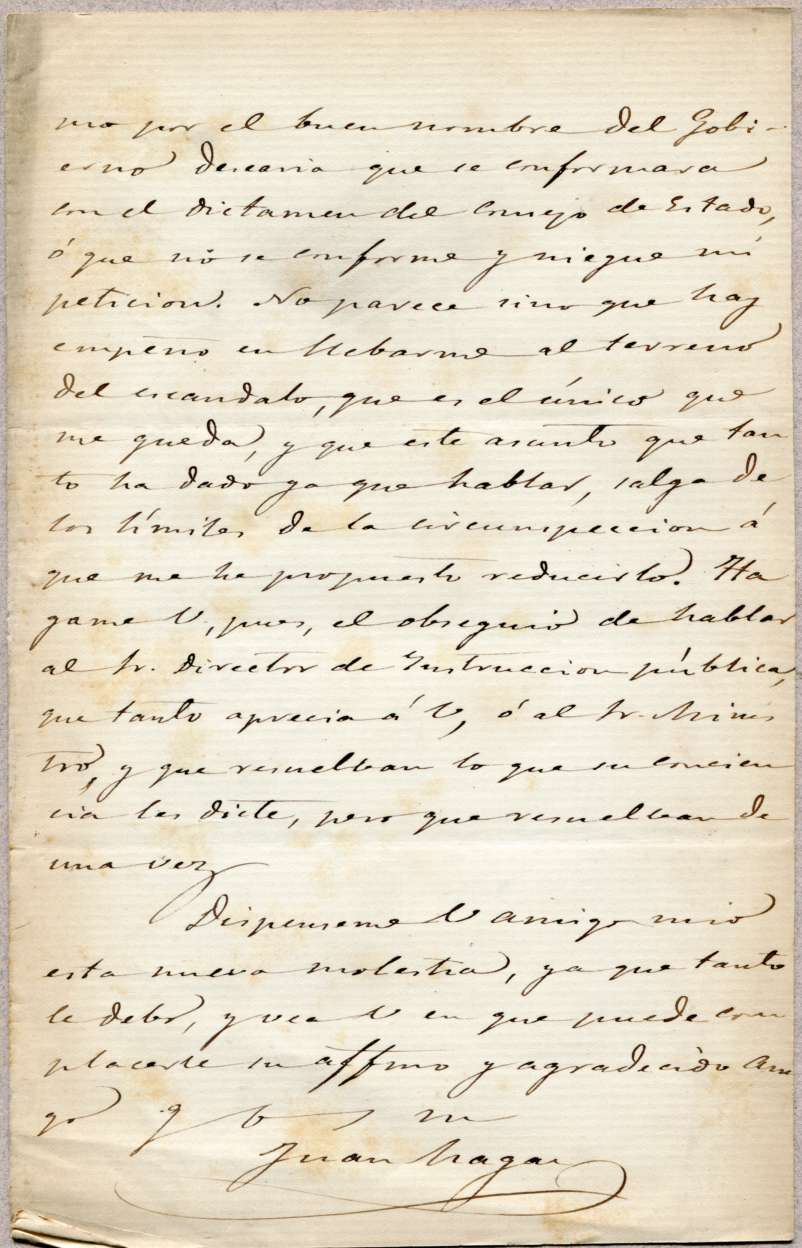 mo por el buen nombre del Gobi-
erno desearia que se conformara
con el dictamen del Consejo de Estado,
ó que no se conforme y niegue mi
peticion. No parece sino que hay
empeño en llebarme al terreno
del escandalo, que es el único que
me queda, y que este asunto que tan
to ha dado ya que hablar, salga de
los límites de la circunspeccion á
que me he propuesto reducirlo. Ha
game V, pues, el obsequio de hablar
al Sr. Director de Instruccion pública,
que tanto aprecia á V, ó al Sr. Minis
tro, y que resuelban lo que su concien
cia les dicte, pero que resuelban de
una vez
Dispenseme V amigo mio
esta nueva molestia, ya que tanto
le debo, y vea V en que puede com
placerle su affmo y agradecido ami
go q b s m
Juan